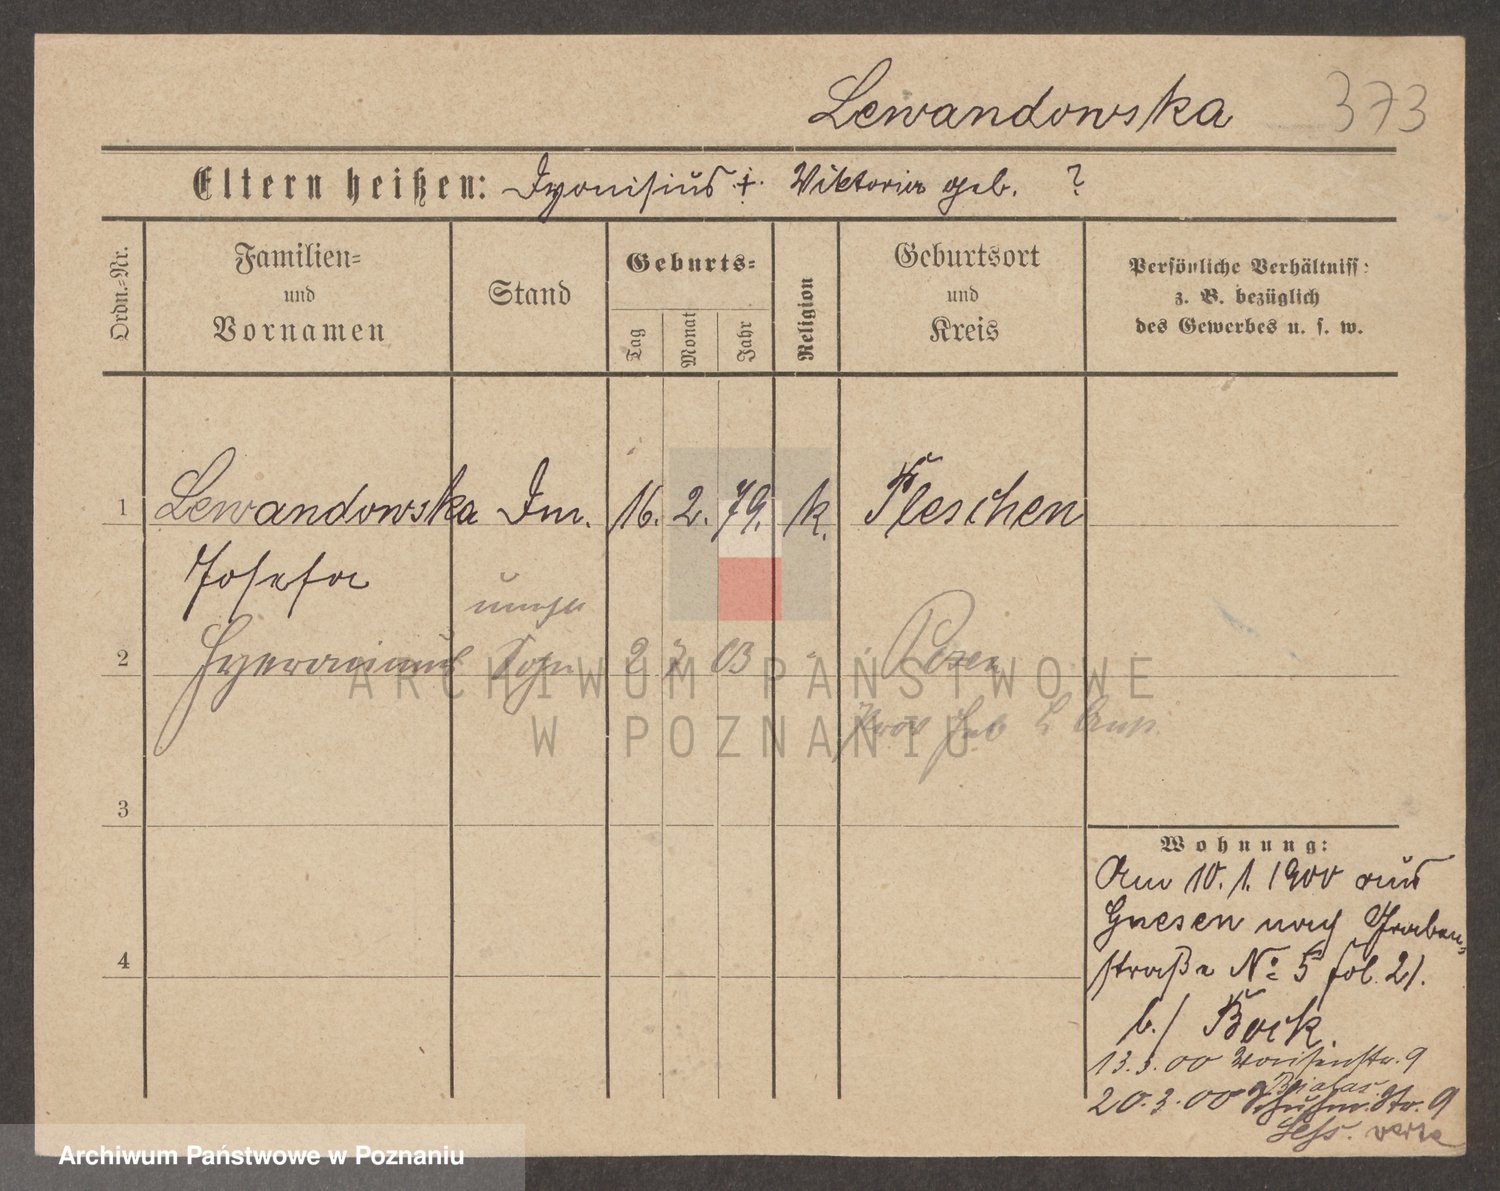 Lewandowska 373
Eltern heißen: Dyonisius + Viktoria geb. ?
Ordn.-Nr.
Familien- und Vornamen
Stand
Geburts-
Tag
Monat
Jahr
Religion
Geburtsort und Kreis
Persönliche Verhältniss:
z. B. bezüglich
des Gewerbes u. s. w.
1 Lewandowska Dm. 16. 2. 79. k. Pleschen
Josefa
unehl
2 Hyeronimus Sohn 2 03 Posen
3
Wohnung:
Am 10. 1. 1900 aus
Gnesen nach Graben-
straße No 5 fol. 21.
4
b./ Bock.
13.3.00 Waisenstr. 9
Bialas
20.3.00 Schuhm. Str. 9
verte
ARCHIWUM PAŃSTWOWE
W POZNANIU
Archiwum Państwowe w Poznaniu